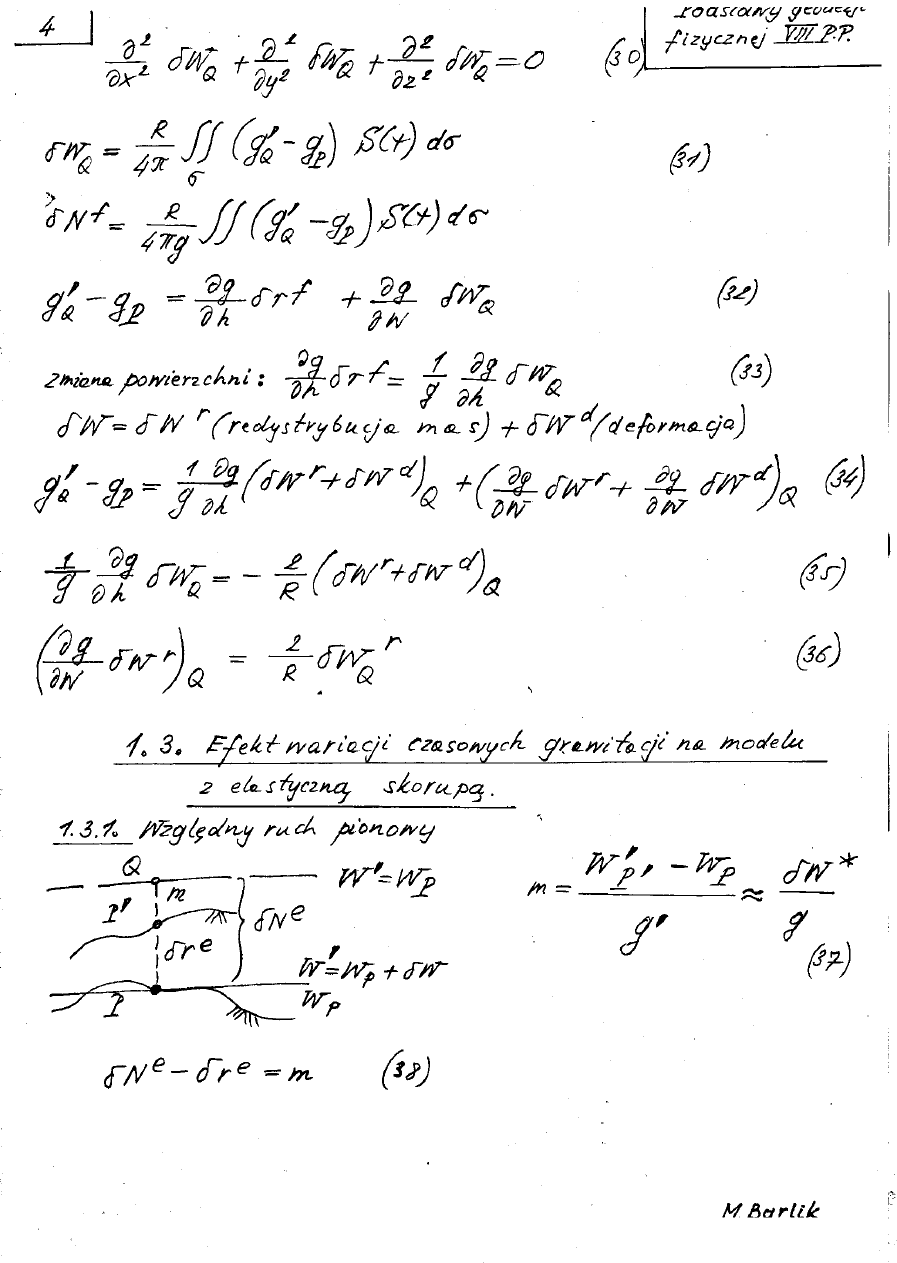 4
fizycznej VIII P.P.
∂²/∂x² δW_Q + ∂²/∂y² δW_Q + ∂²/∂z² δW_Q = 0 (30)
δW_Q = R/4π ∬_σ (g'_Q - g_P) S(t) dσ (31)
δN^f = R/4πg ∬ (g'_Q - g_P) S(t) dσ
g'_Q - g_P = ∂g/∂h δr^f + ∂g/∂W δW_Q (32)
zmiana powierzchni: ∂g/∂h δr^f = 1/g ∂g/∂h δW_Q (33)
δW = δW^r (redystrybucja mas) + δW^d (deformacja)
g'_Q - g_P = 1/g ∂g/∂h (δW^r + δW^d)_Q + (∂g/∂W δW^r + ∂g/∂W δW^d)_Q (34)
1/g ∂g/∂h δW_Q = - 2/R (δW^r + δW^d)_Q (35)
(∂g/∂W δW^r)_Q = 2/R δW_Q^r (36)
1.3. Efekt wariacji czasowych grawitacji na modelu
z elastyczną skorupą.
1.3.1. Względny ruch pionowy
Q W' = W_P
m
P'
δN^e
δr^e
W' = W_P + δW
P W_P
m = (W'_P' - W_P)/g' ≈ δW*/g
(37)
δN^e - δr^e = m (38)
M Barlik